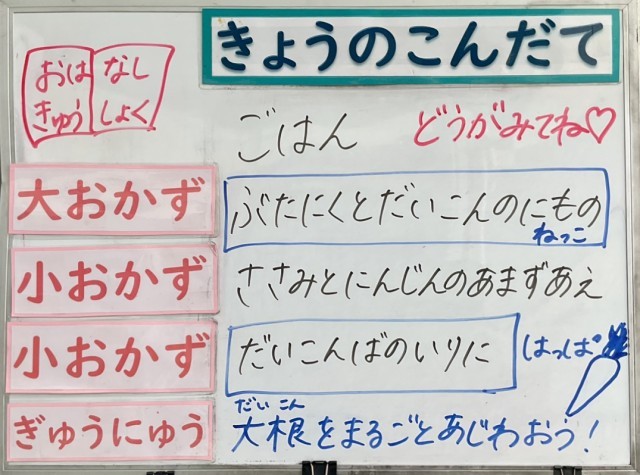 きょうのこんだて
おはなし
きゅうしょく
ごはん
どうがみてね♡
大おかず
ぶたにくとだいこんのにもの
ねっこ
小おかず
ささみとにんじんのあまずあえ
小おかず
だいこんばのいりに
はっぱ
ぎゅうにゅう
だいこん
大根をまるごとあじわおう!